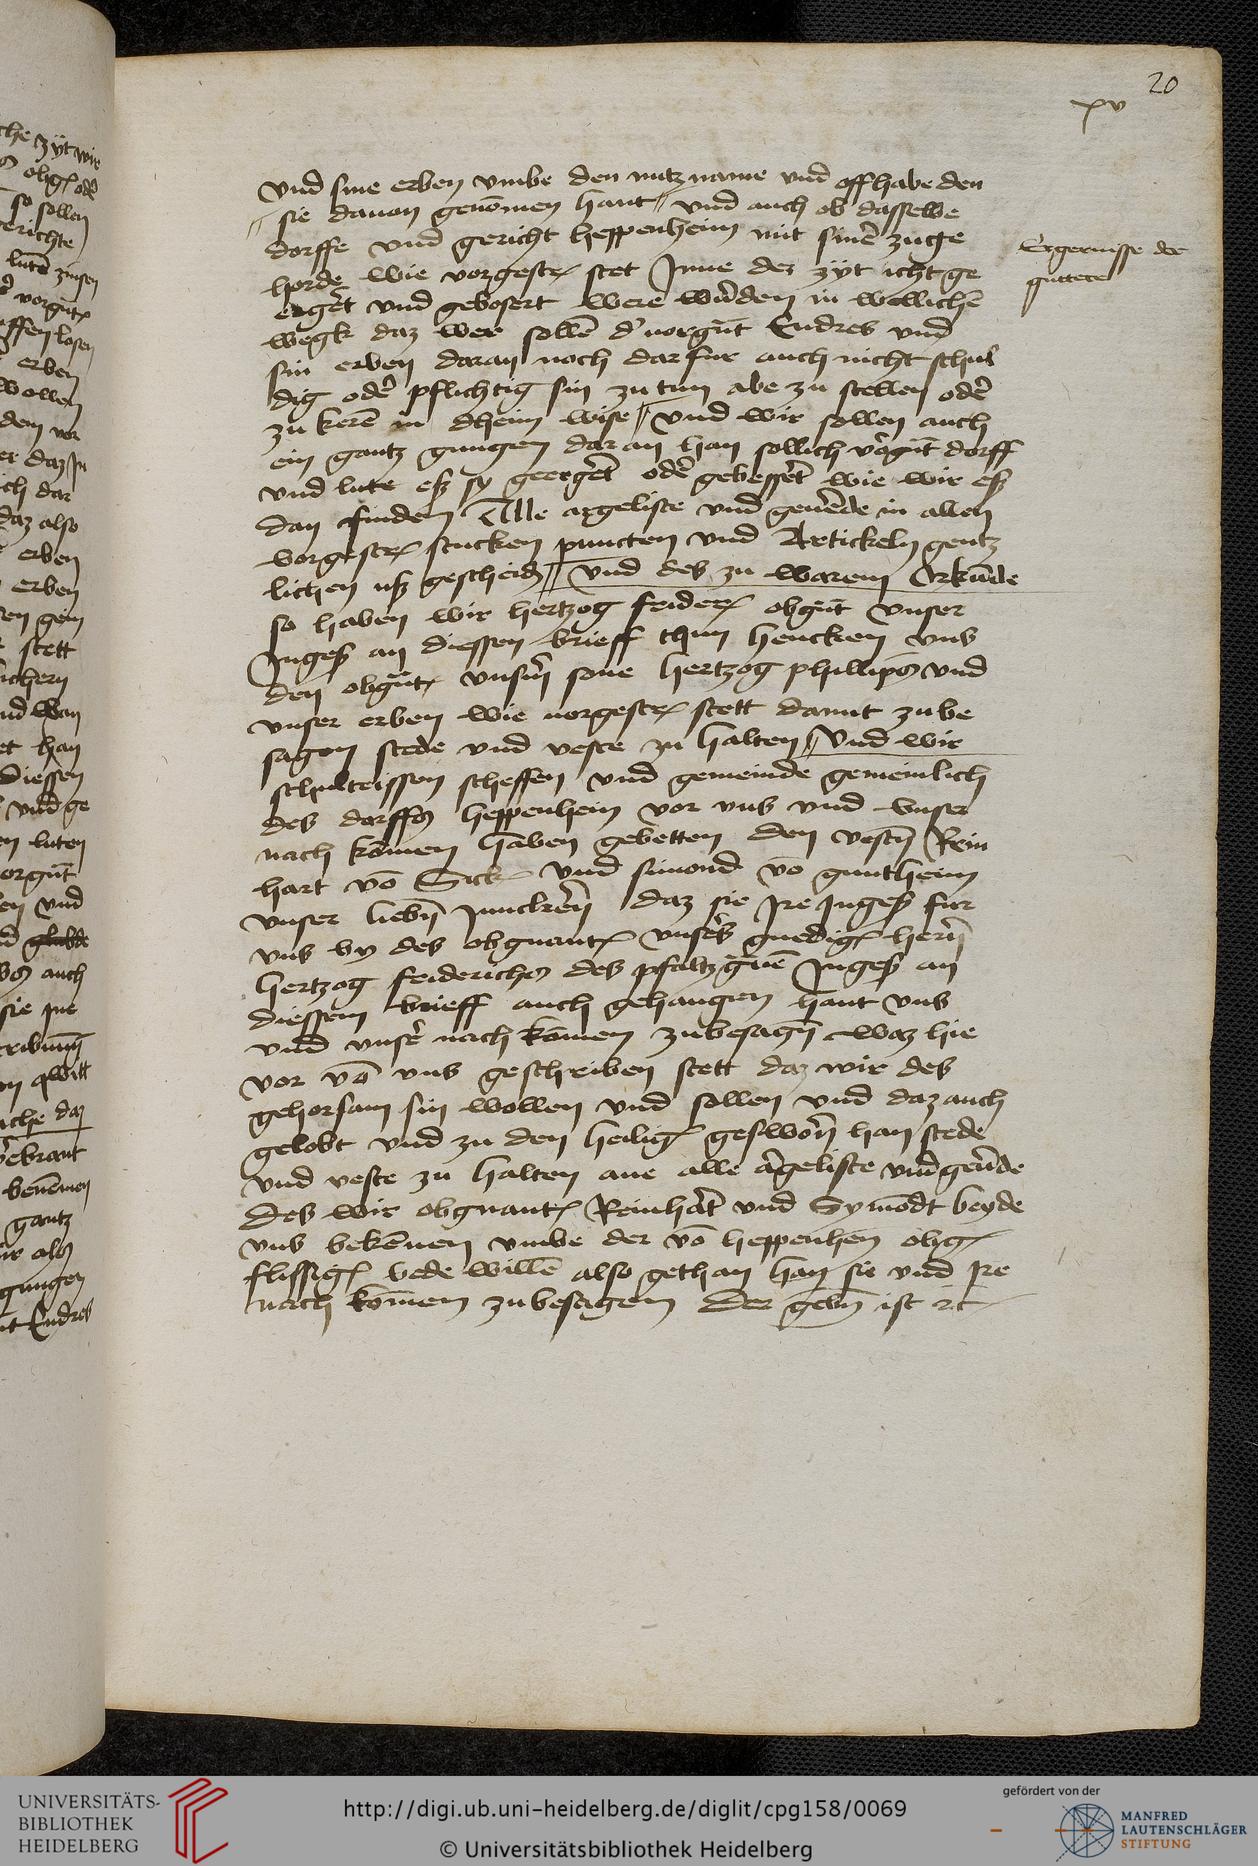 20
xv
vnd sine erben vmbe den nutz name vnd offhabe den
sie dauon genōmen hant // vnd auch ob dasselbe
dorffe vnd gericht heppenheim mit sinē zuge
horde wie vorgestꝭ stet Jnne dez zÿt icht ge
ergēt vnd gebosert were wūrden in wellichē
wegk daz wer sollē d' uorgn̄t Endres vnd
sin erben daran noch darfure auch nicht schul
dig odē pflichtig sin zu tun abe zu stellen odē
zu kerē in dheim wise // vnd wir sollen auch
ein gantz gnugen dar an han sollich vorgn̄t dorff
vnd lute eß sy geergēt odē gebessēt wie wir eß
dan finden Alle argeliste vnd geuērde in allen
vorgestꝭ stucken puncten vnd Artickeln gentz
lichen uß gescheidē // vnd des zu warem Orkūnde
so haben wir hertzog fridērꝭ obgn̄t vnser
Jngeß an diessen brieff thun hencken vns
den obgn̄tꝭ vnsm̄ sone hertzog phillipꝭ vnd
vnser erben wie uorgestꝭ stett damit zu be
sagen stede vnd veste zu halten // Vnd wir
schulteissen scheffen vnd gemeinde gemeinlich
des dorffꝭ heppenhein vor vns vnd vnser
nach kōmen haben gebetten den vestn̄ Rein
hart vō Sick vnd simond vō guntheim
vnser liebn̄ Junckrēn daz sie Ire Jngeß fur
vns by des obgnantꝭ vnsērs gnedigꝭ hern̄
hertzog friderichꝭ des pfaltzgūen Jngeß an
diessem brieff auch gehangen hant vns
vnd vnsē nach kōmen zubesagn̄ waz hie
vor vō vns geschriben stett daz wir des
gehorsam sin wollen vnd sollen vnd daz auch
gelobt vnd zu den heiligꝭ geswōrn han stede
vnd veste zu halten ane alle āgeliste vnd geūde
Des wir obgnantꝭ Reinhāt vnd Symōdt beyde
vns bekēnen vmbe der vō heppenhen obigꝭ
flissigꝭ bede willē also gethan han sie vnd Ire
nach kōmen zubesagen Der gebn̄ ist ⁊c
Ergernisse der
guttere
UNIVERSITÄTS-
BIBLIOTHEK
HEIDELBERG
http://digi.ub.uni-heidelberg.de/diglit/cpg158/0069
© Universitätsbibliothek Heidelberg
gefördert von der
MANFRED
LAUTENSCHLÄGER
STIFTUNG